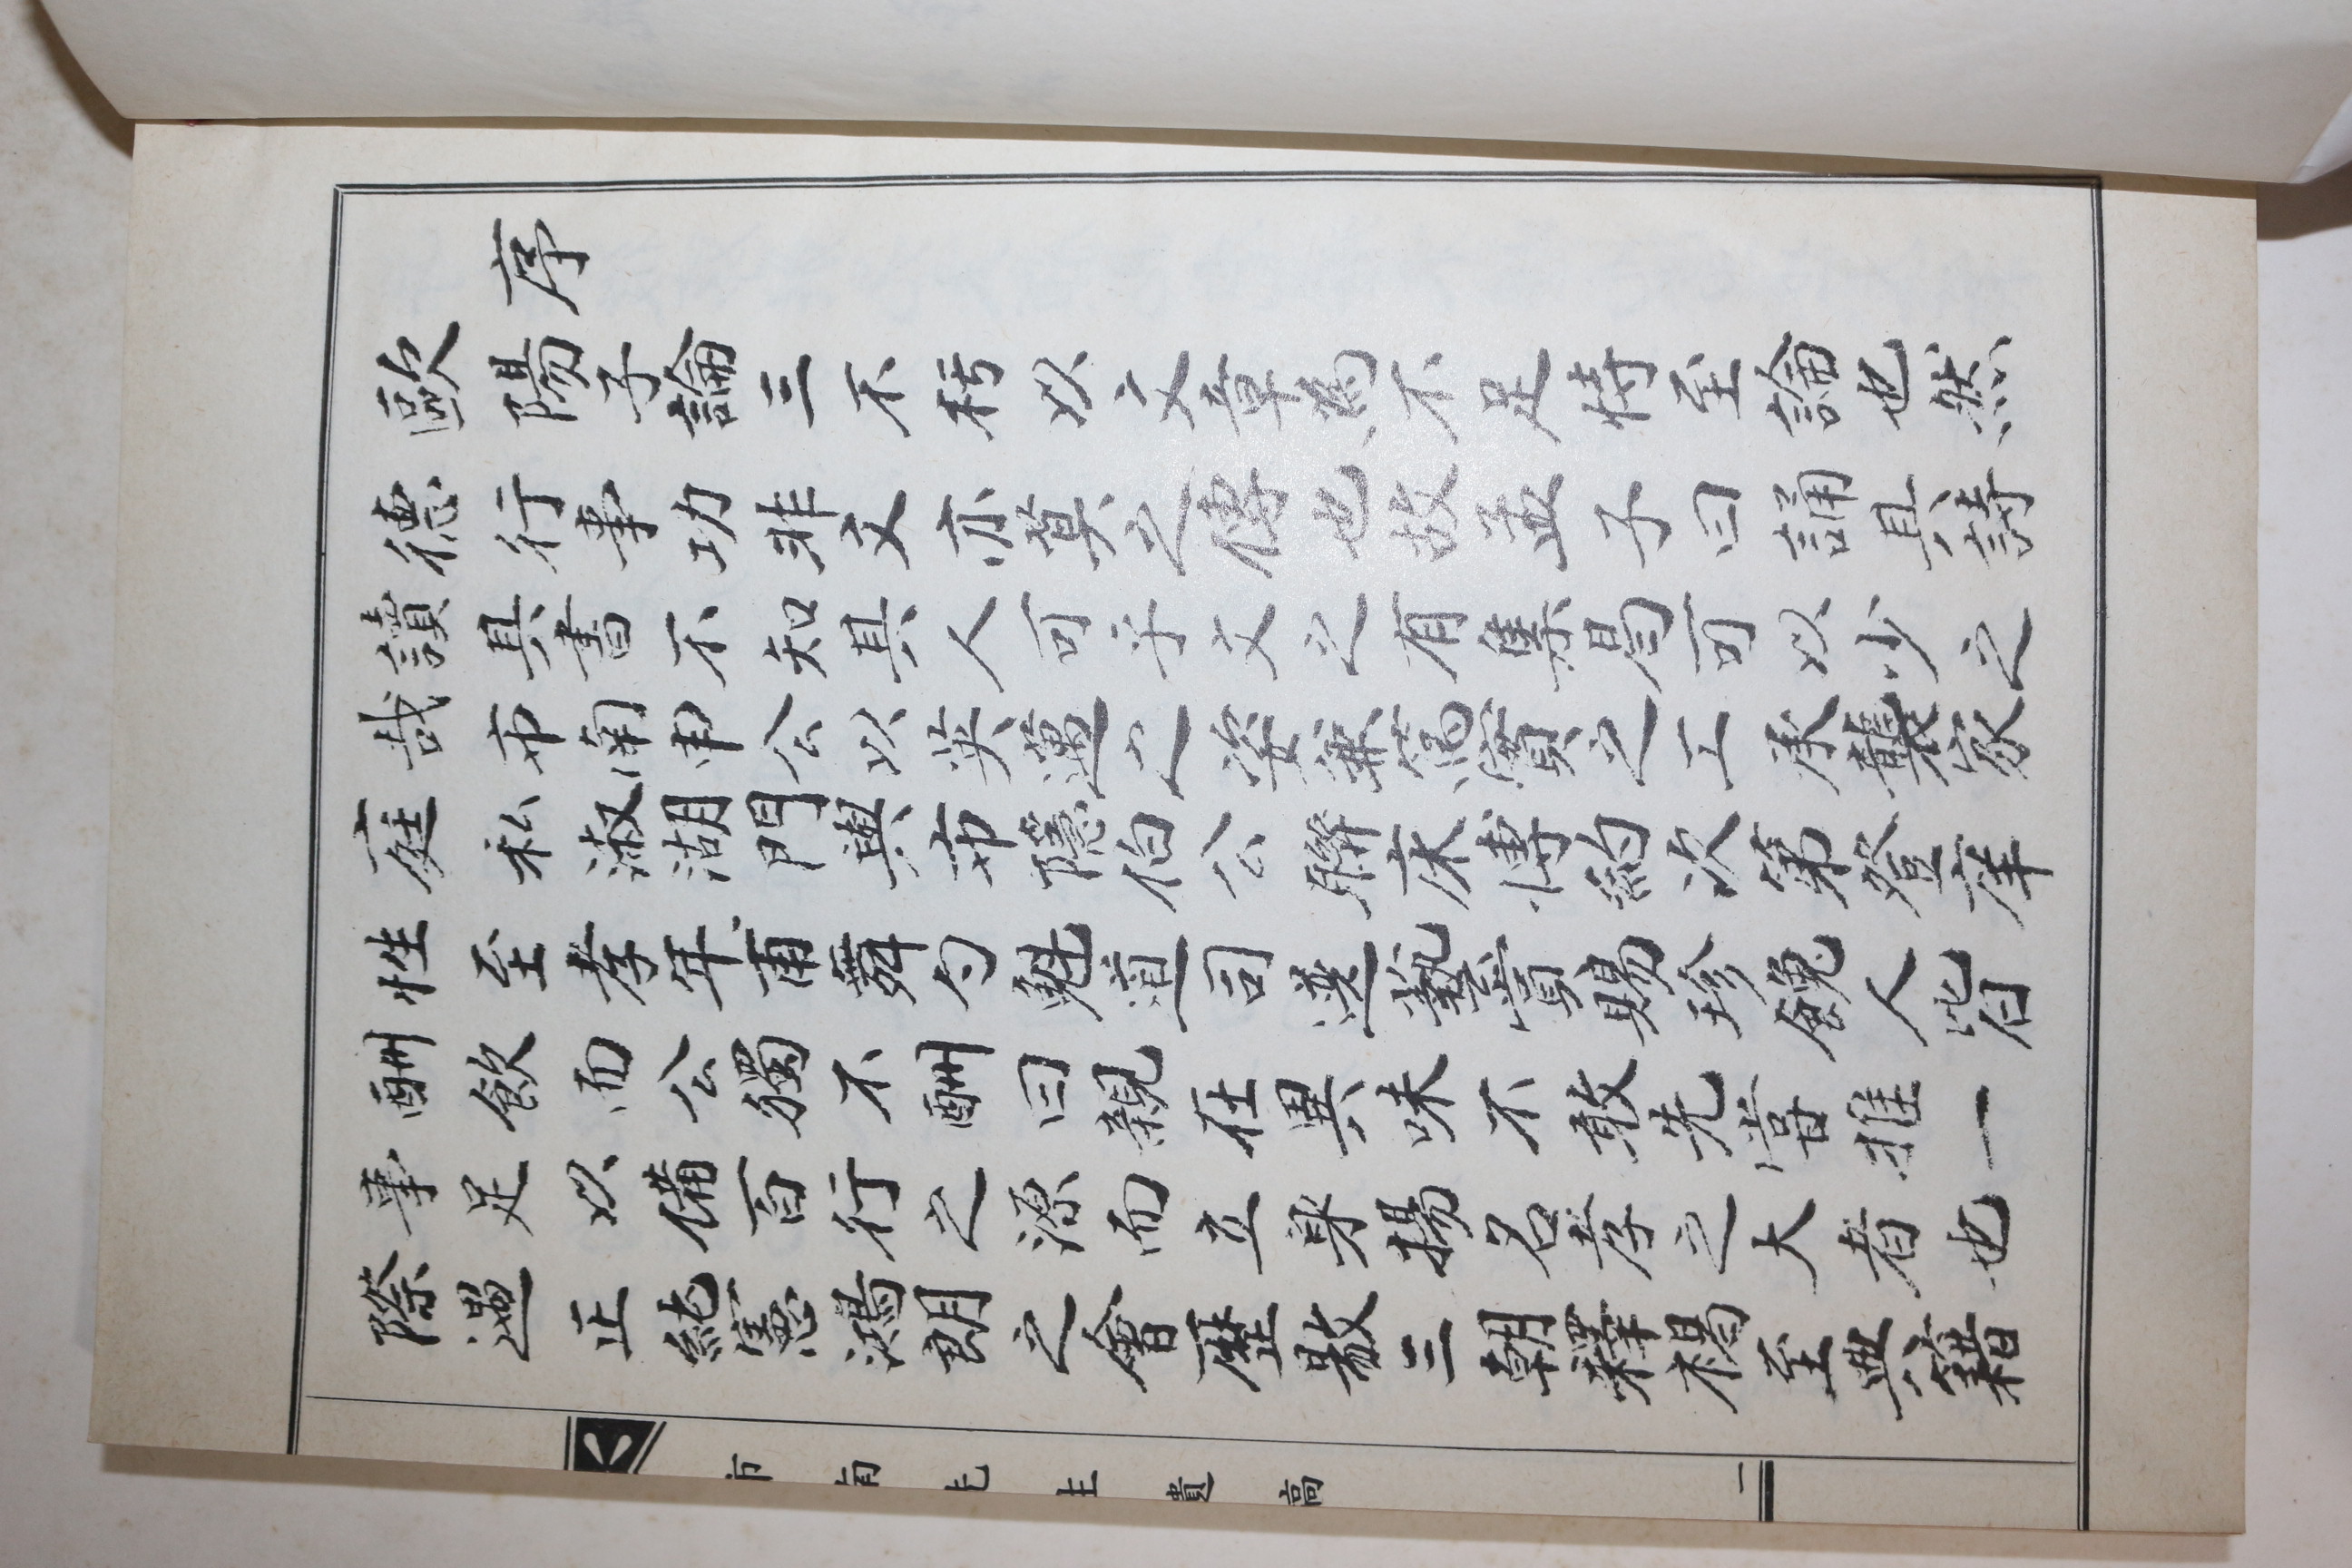 序
歐陽子論三不朽以文章為不足恃至論也然
德行事功非文亦莫之傳也故孟子曰誦其詩
讀其書不知其人可乎文之有集曷可以少之
哉市南申公以英邁之姿兼篤實之工承襲家
庭私淑湖門與市隱伯公聯床博約次第登庠
性至孝年甫舞勺魁道司選藝賞賜珍餽人皆
酬飲而公獨不酬曰親在異味不敢先嘗推一
事足以備百行之源而立身揚名孝之大者也
際遇正純憲鴻朗之會歷敭三朝釋褐至典籍
市南先生遺稿
一